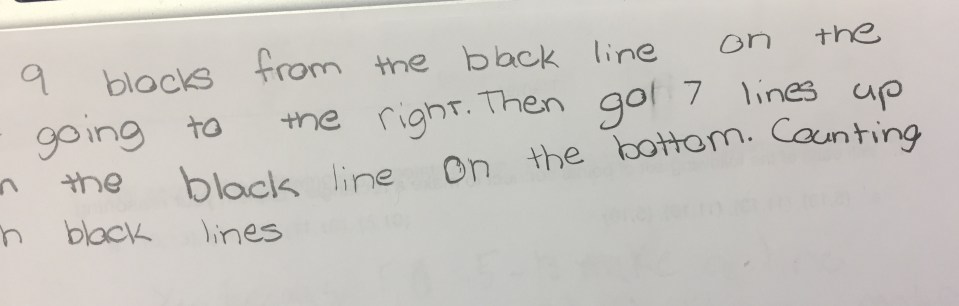 9 blocks from the black line on the
going to the right. Then go 7 lines up
n the black line on the bottom. Counting
h black lines